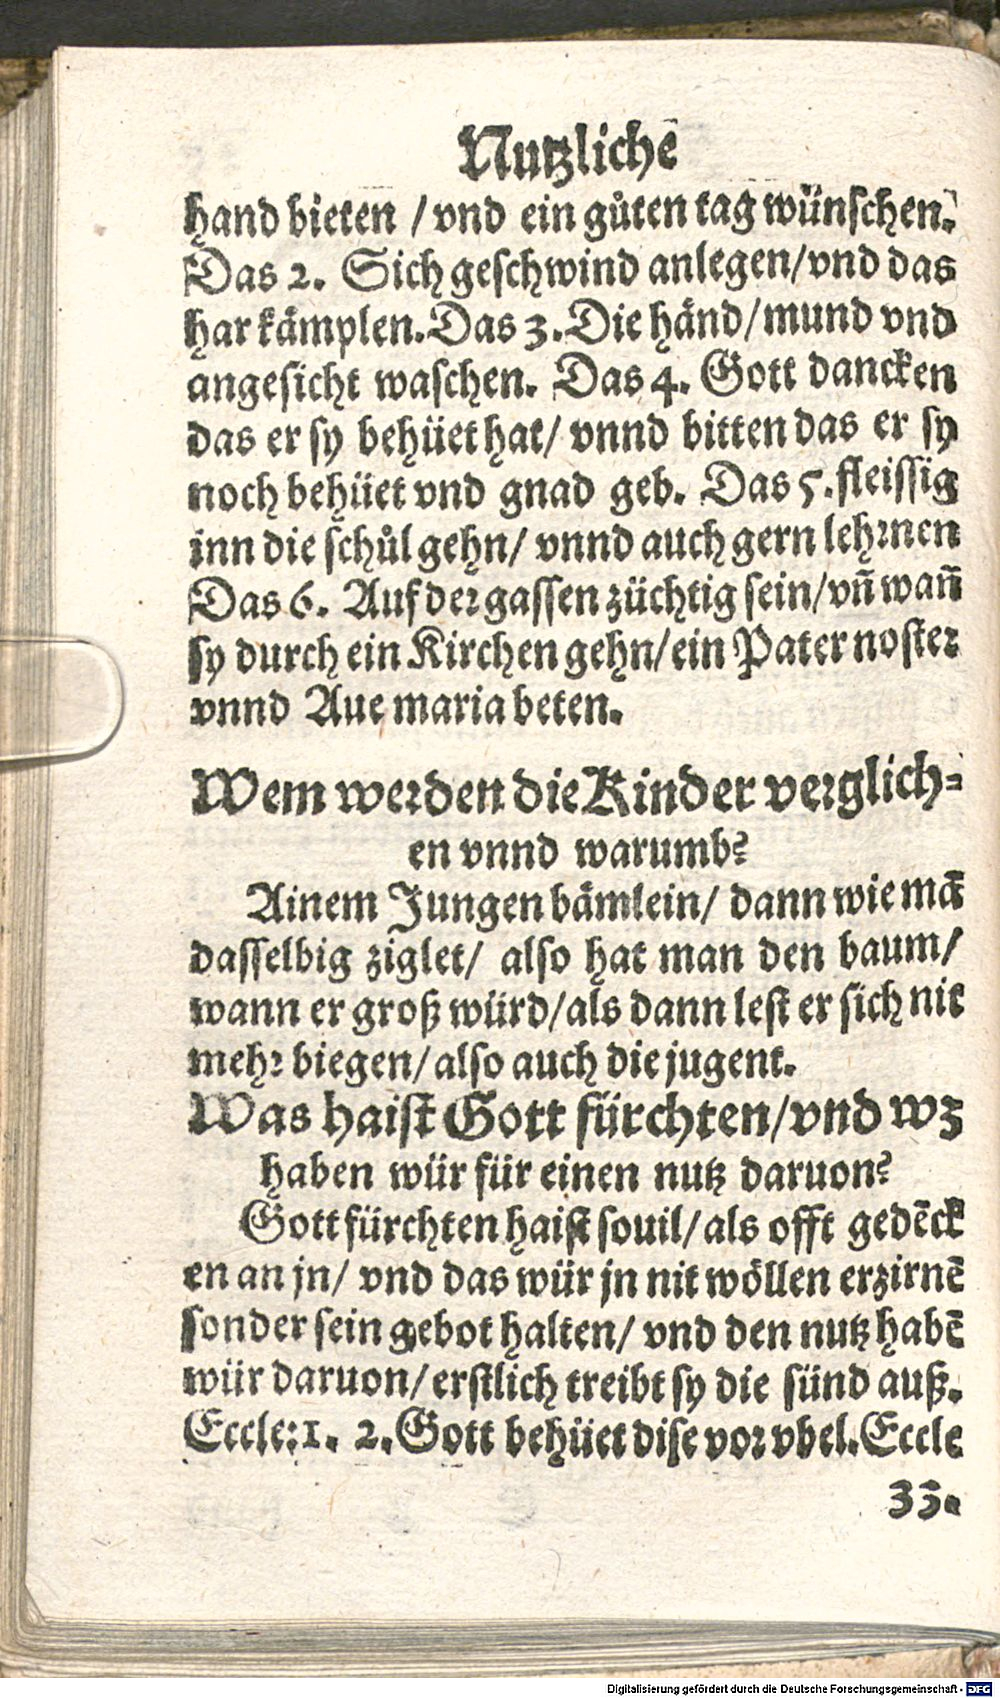 Nutzlichē
hand bieten / vnd ein gůten tag wünschen.
Das 2. Sich geschwind anlegen/vnd das
har kämplen. Das 3. Die händ/mund vnd
angesicht waschen. Das 4. Gott dancken
das er sy behüet hat/ vnnd bitten das er sy
noch behüet vnd gnad geb. Das 5. fleissig
inn die schůl gehn/ vnnd auch gern lehrnen
Das 6. Auf der gassen züchtig sein/vn̄ wan̄
sy durch ein Kirchen gehn/ein Pater noster
vnnd Aue maria beten.
Wem werden die Kinder verglich-
en vnnd warumb?
Ainem Jungen bämlein/ dann wie mā
dasselbig ziglet/ also hat man den baum/
wann er groß würd/als dann lest er sich nit
mehr biegen/also auch die jugent.
Was haist Gott fürchten/vnd wz
haben wür für einen nutz daruon?
Gott fürchten haist souil/als offt gedēck
en an jn/ vnd das wür jn nit wöllen erzirnē
sonder sein gebot halten/ vnd den nutz habē
wür daruon/erstlich treibt sy die sünd auß.
Eccle:1. 2. Gott behüet dise vor vbel. Eccle
33.
Digitalisierung gefördert durch die Deutsche Forschungsgemeinschaft - DFG